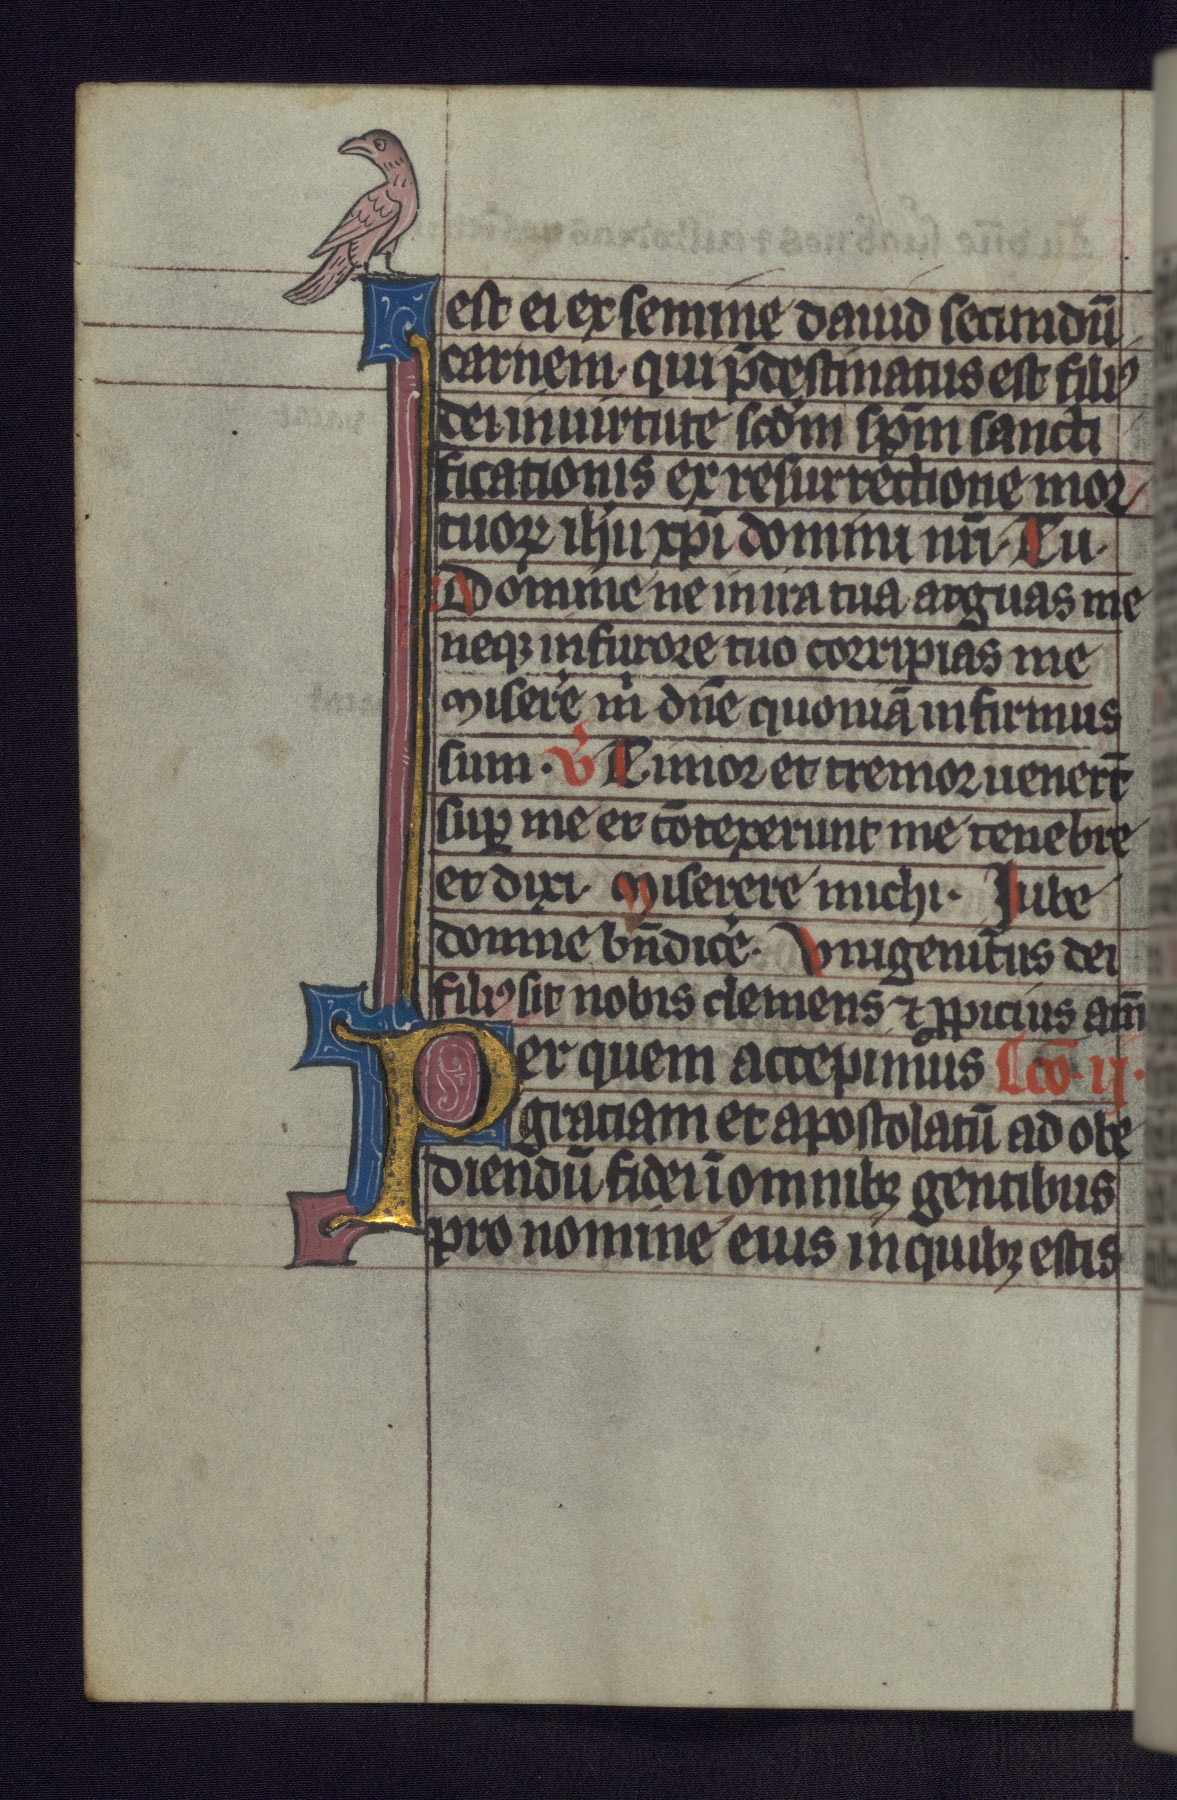 est ei ex semine dauid secundū
carnem. qui p̄destinatus est filiꝰ
dei in uirtute scd̄m sp̄m sancti
ficationis ex resurrectione mor
tuoꝝ ih̄u xp̄i domini nr̄i. Tu.
Domine ne in ira tua arguas me
neqꝫ in furore tuo corripias me
Miserēe m̄ dn̄e quoniā infirmus
sum. V̄ Timor et tremor uenert̄
suꝑ me et cōtexerunt me tenebre
et dixi. Miserere michi. Iube
domne bn̄dic̄e. Vnigenit̄us dei
filiꝰ sit nobis clemens ⁊ ꝓpicius am̄
Per quem accepimus Lc̄o. ij.
gratiam et apostolatū ad obe
diendū fidei ī omnibꝫ gentibus
pro nomine eius in quibꝫ estis